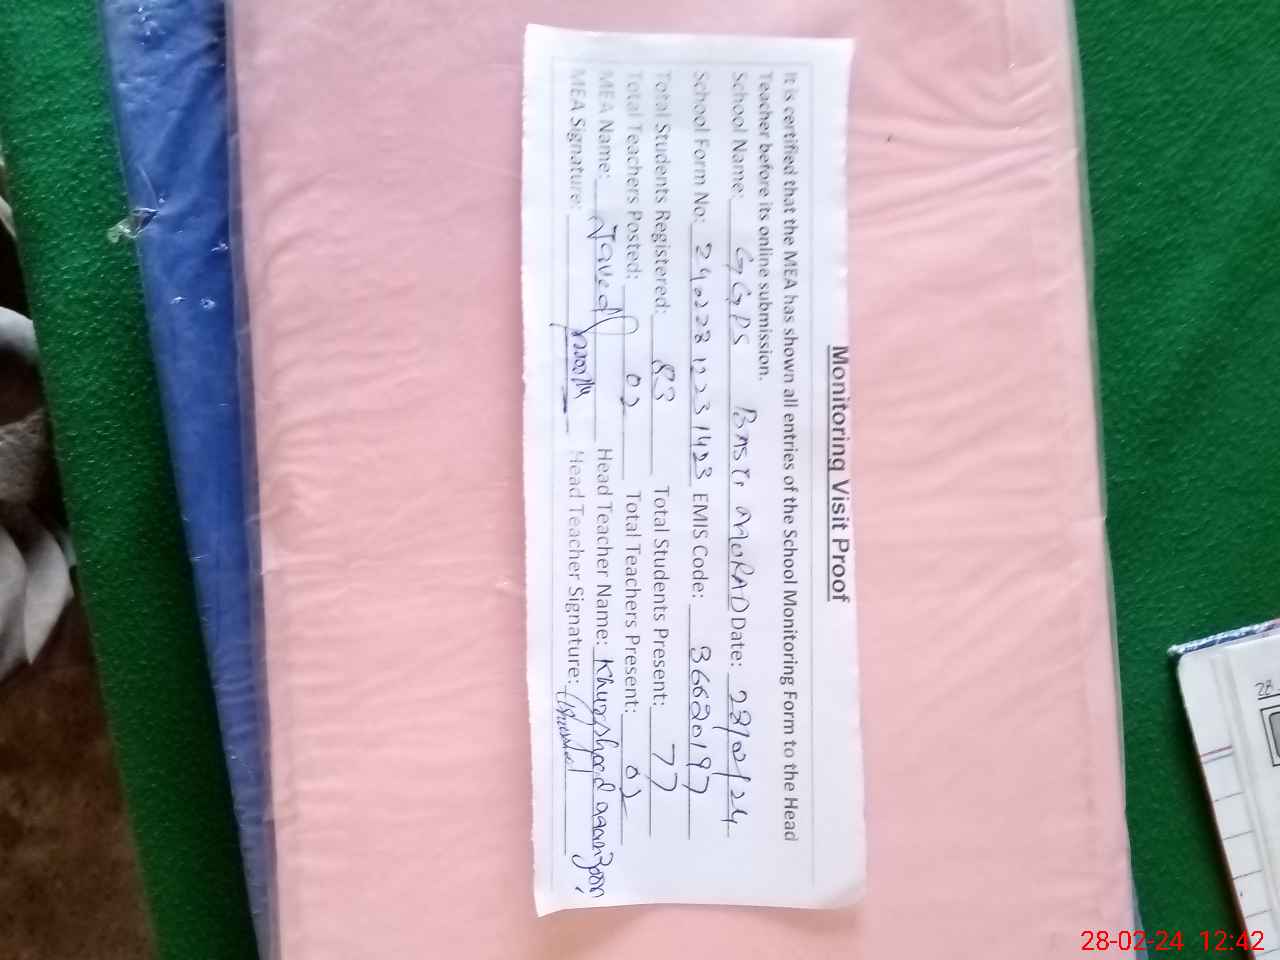 Monitoring Visit Proof
It is certified that the MEA has shown all entries of the School Monitoring Form to the Head
Teacher before its online submission.
School Name: GGPS BASTI MORAD Date: 28/02/24
School Form No: EMIS Code: 36620197
Total Students Registered: 83 Total Students Present: 77
Total Teachers Posted: 02 Total Teachers Present: 02
MEA Name: Javed Head Teacher Name: Khursheed
MEA Signature: Head Teacher Signature:
28
28-02-24 12:42